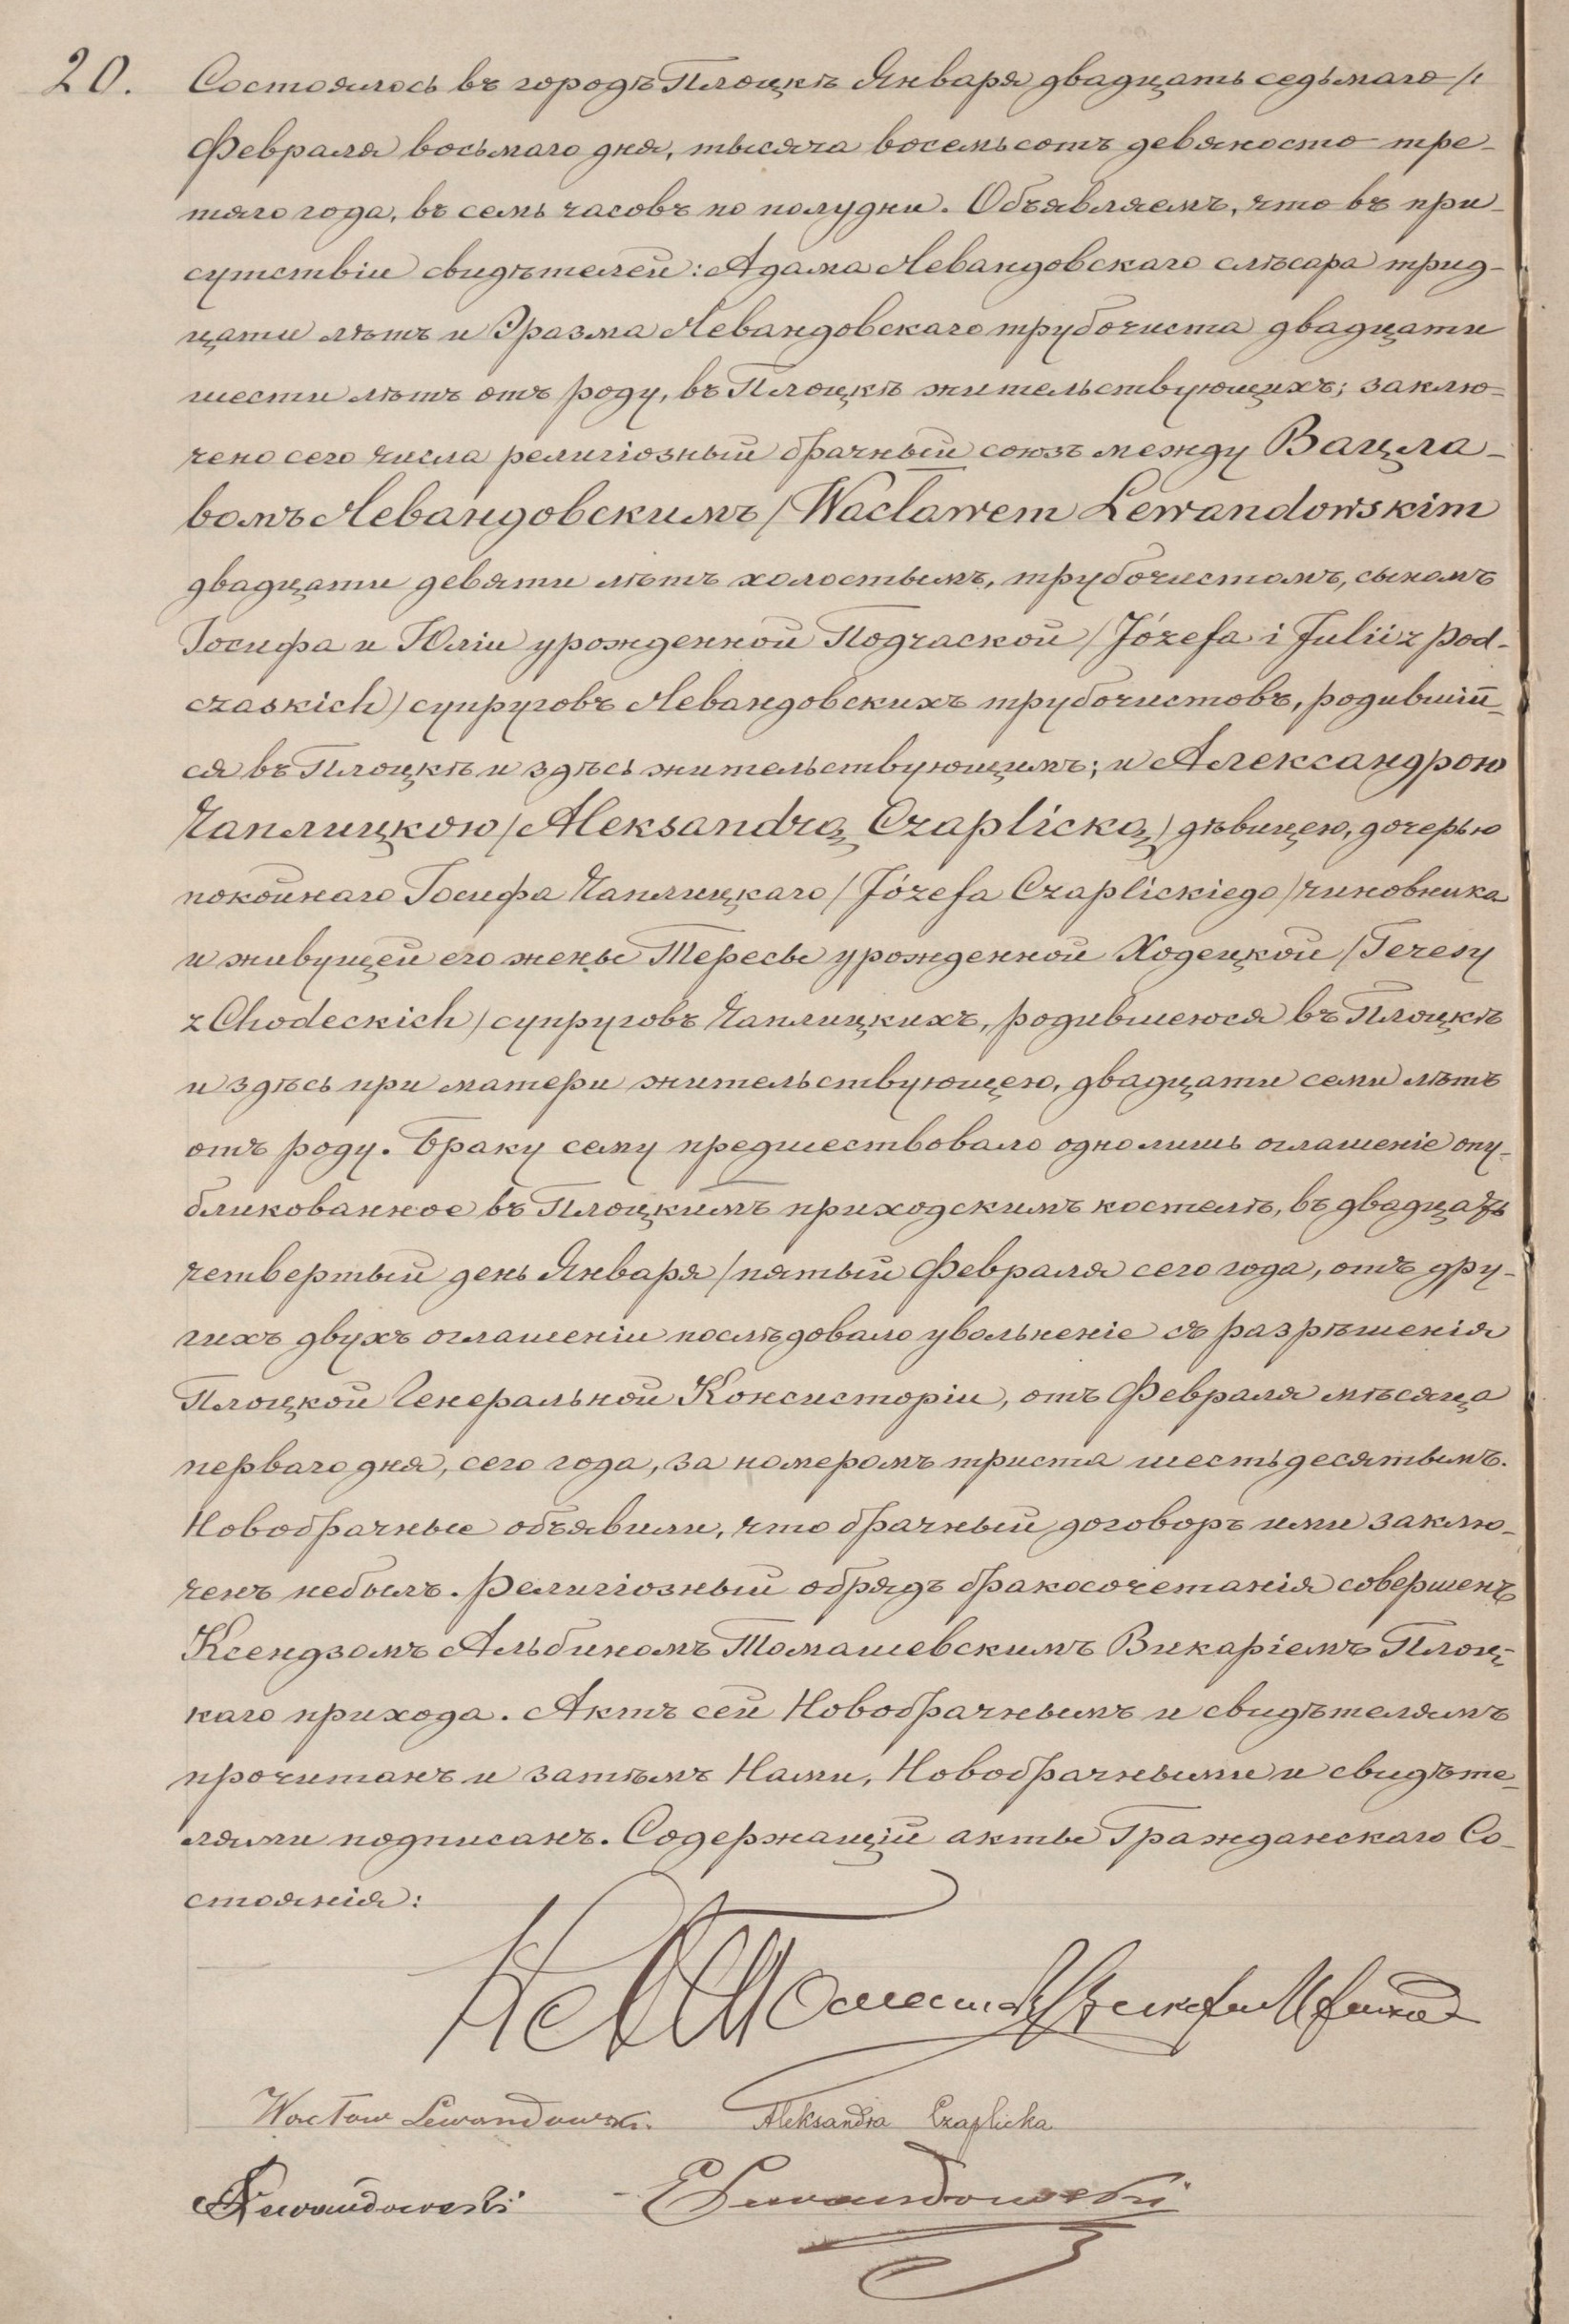 20. Состоялось въ городѣ Плоцкѣ Января двадцать седьмаго /
Февраля восьмаго дня, тысяча восемьсотъ девяносто тре-
тяго года, въ семь часовъ по полудни. Объявляемъ, что въ при-
сутствіи свидѣтелей: Адама Левандовскаго слѣсара трид-
цати лѣтъ и Эразма Левандовскаго трубочиста двадцати
шести лѣтъ отъ роду, въ Плоцкѣ жительствующихъ; заклю-
чено сего числа религіозный брачный союзъ между Вацла-
вомъ Левандовскимъ / Wacławem Lewandowskim
двадцати девяти лѣтъ холостымъ, трубочистомъ, сыномъ
Іосифа и Юліи урожденной Подчаской / Józefa i Julii z Pod-
czaskich) супруговъ Левандовскихъ трубочистовъ, родившій-
ся въ Плоцкѣ и здѣсь жительствующимъ; и Александрою
Чаплицкою / Aleksandrą Czaplicką) дѣвицею, дочерью
покойнаго Іосифа Чаплицкаго / Józefa Czaplickiego) чиновника
и живущей его жены Тересы урожденной Ходецкой / Teresy
z Chodeckich) супруговъ Чаплицкихъ, родившеюся въ Плоцкѣ
и здѣсь при матери жительствующею, двадцати семи лѣтъ
отъ роду. Браку сему предшествовало одно лишь оглашеніе опу-
бликованное въ Плоцкимъ приходскимъ костелѣ, въ двадцать
четвертый день Января / пятый Февраля сего года, отъ дру-
гихъ двухъ оглашеніи послѣдовало увольненіе съ разрѣшенія
Плоцкой Генеральной Консисторіи, отъ Февраля мѣсяца
перваго дня, сего года, за номеромъ триста шестьдесятымъ.
Новобрачные объявили, что брачный договоръ ими заклю-
ченъ небылъ. Религіозный обрядъ бракосочетанія совершенъ
Ксендзомъ Альбиномъ Томашевскимъ Викаріемъ Плоц-
каго прихода. Актъ сей Новобрачнымъ и свидѣтелямъ
прочитанъ и затѣмъ Нами, Новобрачными и свидѣте-
лями подписанъ. Содержащій акты Гражданскаго Со-
стоянія:
Wacław Lewandowski. Aleksandra Czaplicka
ALewandowski ELewandowski